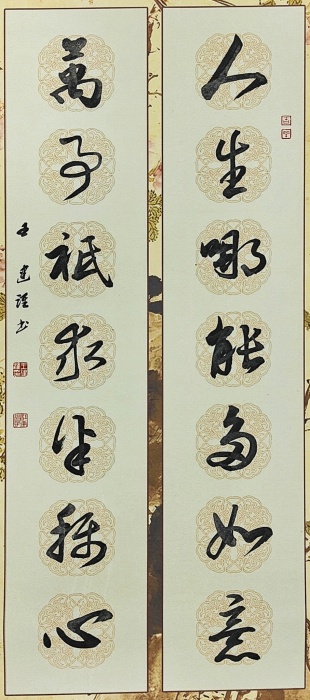 人生哪能多如意
萬事祇求半稱心
王建
書